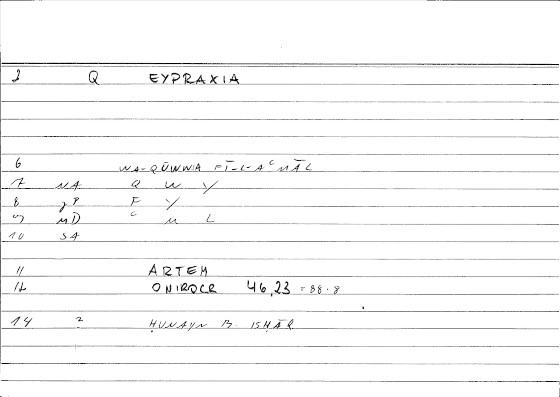 2 Q EYPRAXIA
6 WA-QŪWWA FĪ-L-AʿMĀL
7 NA Q W Y
8 gP F Y
9 MD ʿ M L
10 SA
11 ARTEM
12 ONIROCR 46,23 = 88.8
14 ? ḤUNAYN B ISḤĀQ